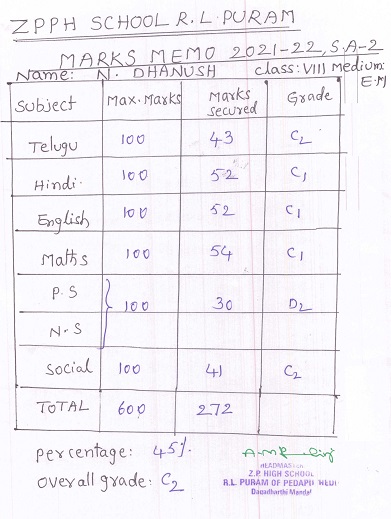 ZPPH SCHOOL R.L.PURAM
MARKS MEMO 2021-22, S.A-2
Name: N. DHANUSH class: VIII Medium: E.M
Subject Max.Marks Marks secured Grade
Telugu 100 43 C2
Hindi. 100 52 C1
English 100 52 C1
Maths 100 54 C1
P.S
100 30 D2
N.S
Social 100 41 C2
TOTAL 600 272
percentage: 45%
overall grade: C2
HEADMASTER
Z.P. HIGH SCHOOL
R.L. PURAM OF PEDAPU